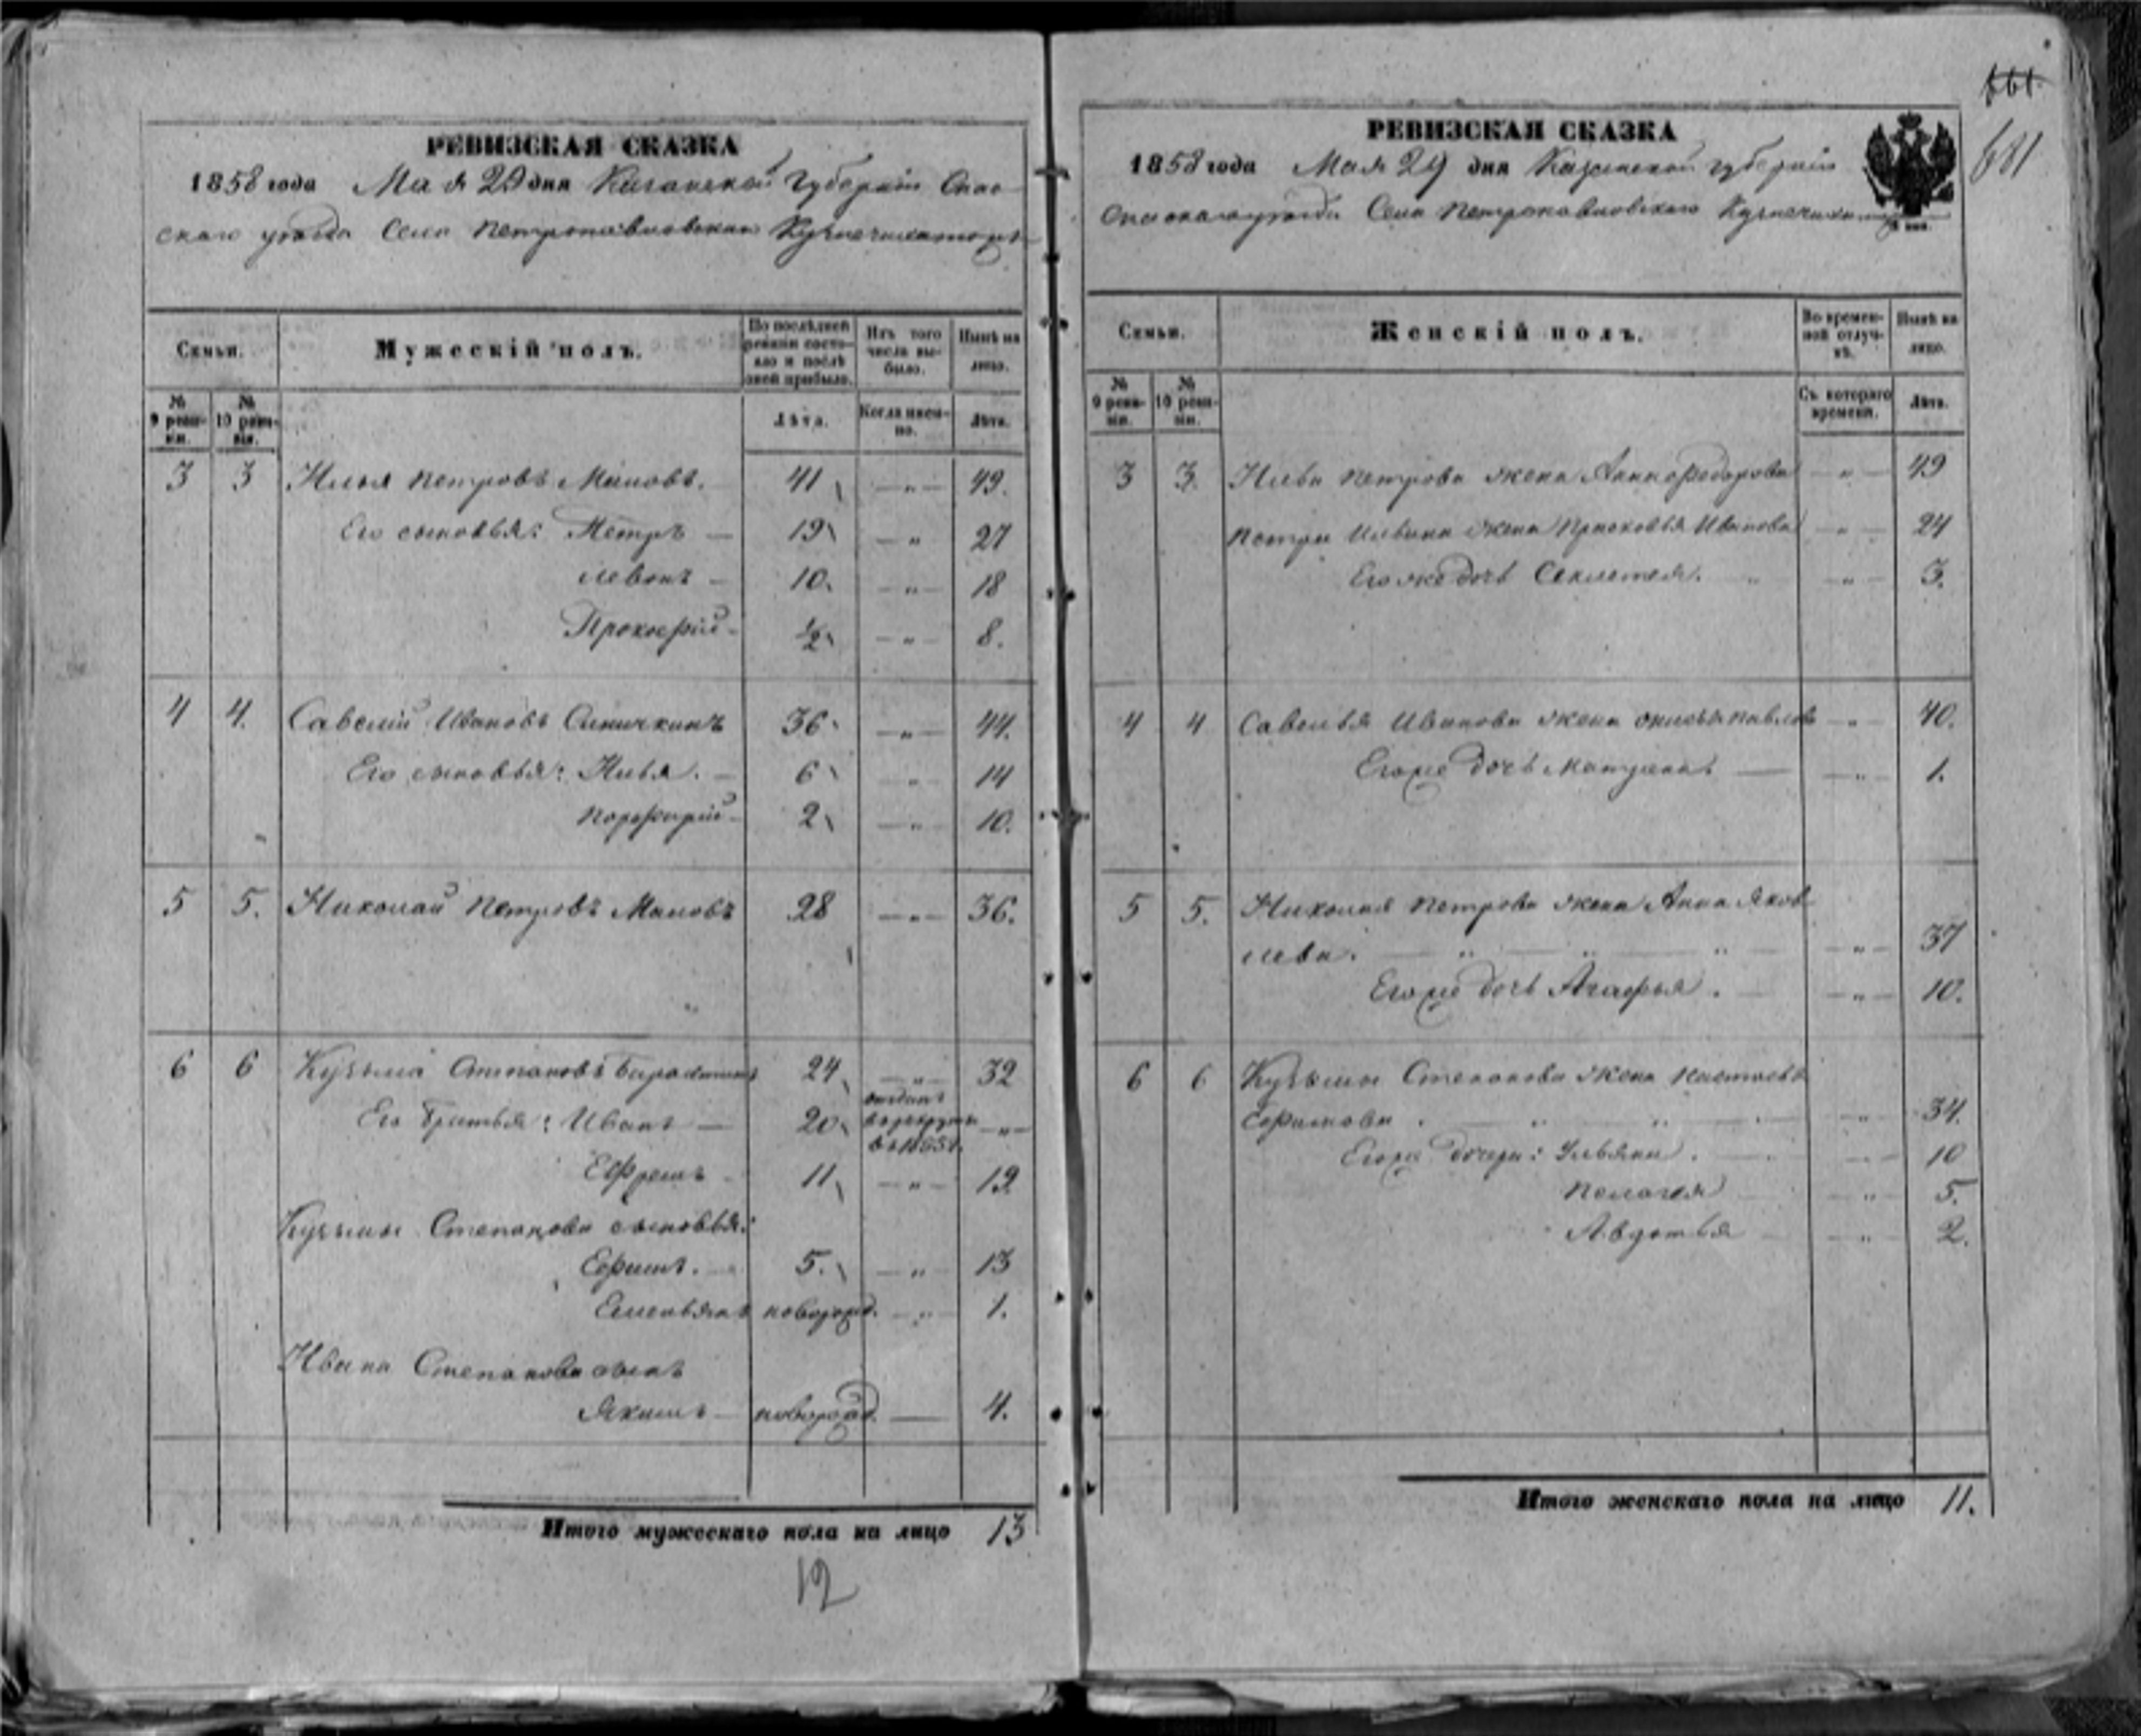 РЕВИЗСКАЯ СКАЗКА
1858 года Мая 29 дня Казанской Губернiи Спас
скаго уѣзда Села Петропавловскаго
Семьи.
Мужескiй полъ.
По послѣдней ревизiи состояло и послѣ оной прибыло.
Изъ того числа выбыло.
Нынѣ на лицо.
№ 9 ревизiи.
№ 10 ревизiи.
Лѣта.
Когда именно.
Лѣта.
3 3 Илья Петровъ Маиовъ. 41 — „ — 49.
Его сыновья: Петръ — 19 — „ 27
Левонъ — 10. — „ — 18
Прокофiй — ½ — „ — 8.
4 4. Савелiй Ивановъ Синичкинъ 36 — „ — 44.
Его сыновья: Илья. — 6 „ 14
Порфирiй — 2 — „ — 10.
5 5. Николай Петровъ Маиовъ 28 — „ — 36.
6 6 Кузьма Степановъ 24 — „ — 32
Его братья: Иванъ — 20 отданъ въ рекруты въ 1855 г. — „ —
Ефремъ — 11 — „ — 19
Кузьмы Степанова сыновья:
Ефимъ. — 5. — „ 13
Емельянъ новорожд. — „ — 1.
Ивана Степанова сынъ
Якимъ — новорожд. — 4.
Итого мужескаго пола на лицо 13
12
661
681
РЕВИЗСКАЯ СКАЗКА
1858 года Мая 29 дня Казанской губернiи
Спаскаго уѣзда Села Петропавловскаго
Семьи.
Женскiй полъ.
Во временной отлучкѣ.
Нынѣ на лицо.
№ 9 ревизiи.
№ 10 ревизiи.
Съ котораго времени.
Лѣта.
3 3. Ильи Петрова жена Анна Федорова — „ — 49
Петра Ильина жена Прасковья Иванова — „ — 24
Его же дочь Секлетея. „ — „ — 3.
4 4 Савелья Иванова жена Павлов — „ — 40.
Его же дочь — — „ — 1.
5 5. Николая Петрова жена Анна Яков
лева. — „ — „ — „ — — „ — 37
Его же дочь Агафья. — — „ — 10.
6 6 Кузьмы Степанова жена Настасья
Ефимова. „ „ — „ — 34.
Его же дочери: Ульяна. — — „ — 10
Пелагея — — „ — 5.
Авдотья — — „ — 2.
Итого женскаго пола на лицо 11.